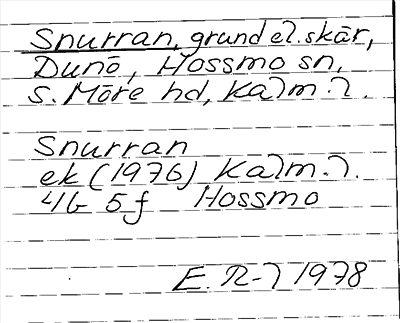 Snurran, grund el. skär,
Dunö, Hossmo sn,
S. Möre hd, Kalm. l.
Snurran
ek (1976) Kalm. l.
4G 5f Hossmo
E. R-l 1978